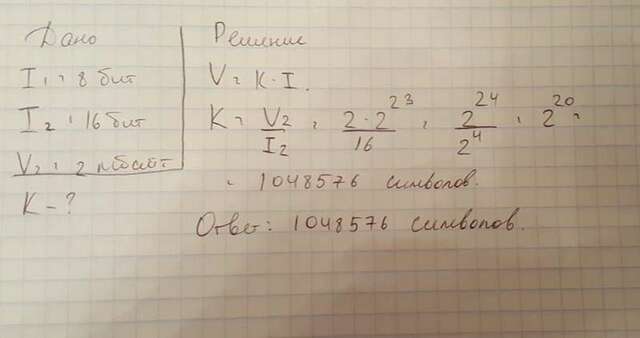 Дано
I₁ = 8 бит
I₂ = 16 бит
V₂ = 2 Мбайт
K - ?
Решение
V = K · I.
K = V₂/I₂ = 2·2²³/16 = 2²⁴/2⁴ = 2²⁰ =
= 1048576 символов.
Ответ: 1048576 символов.